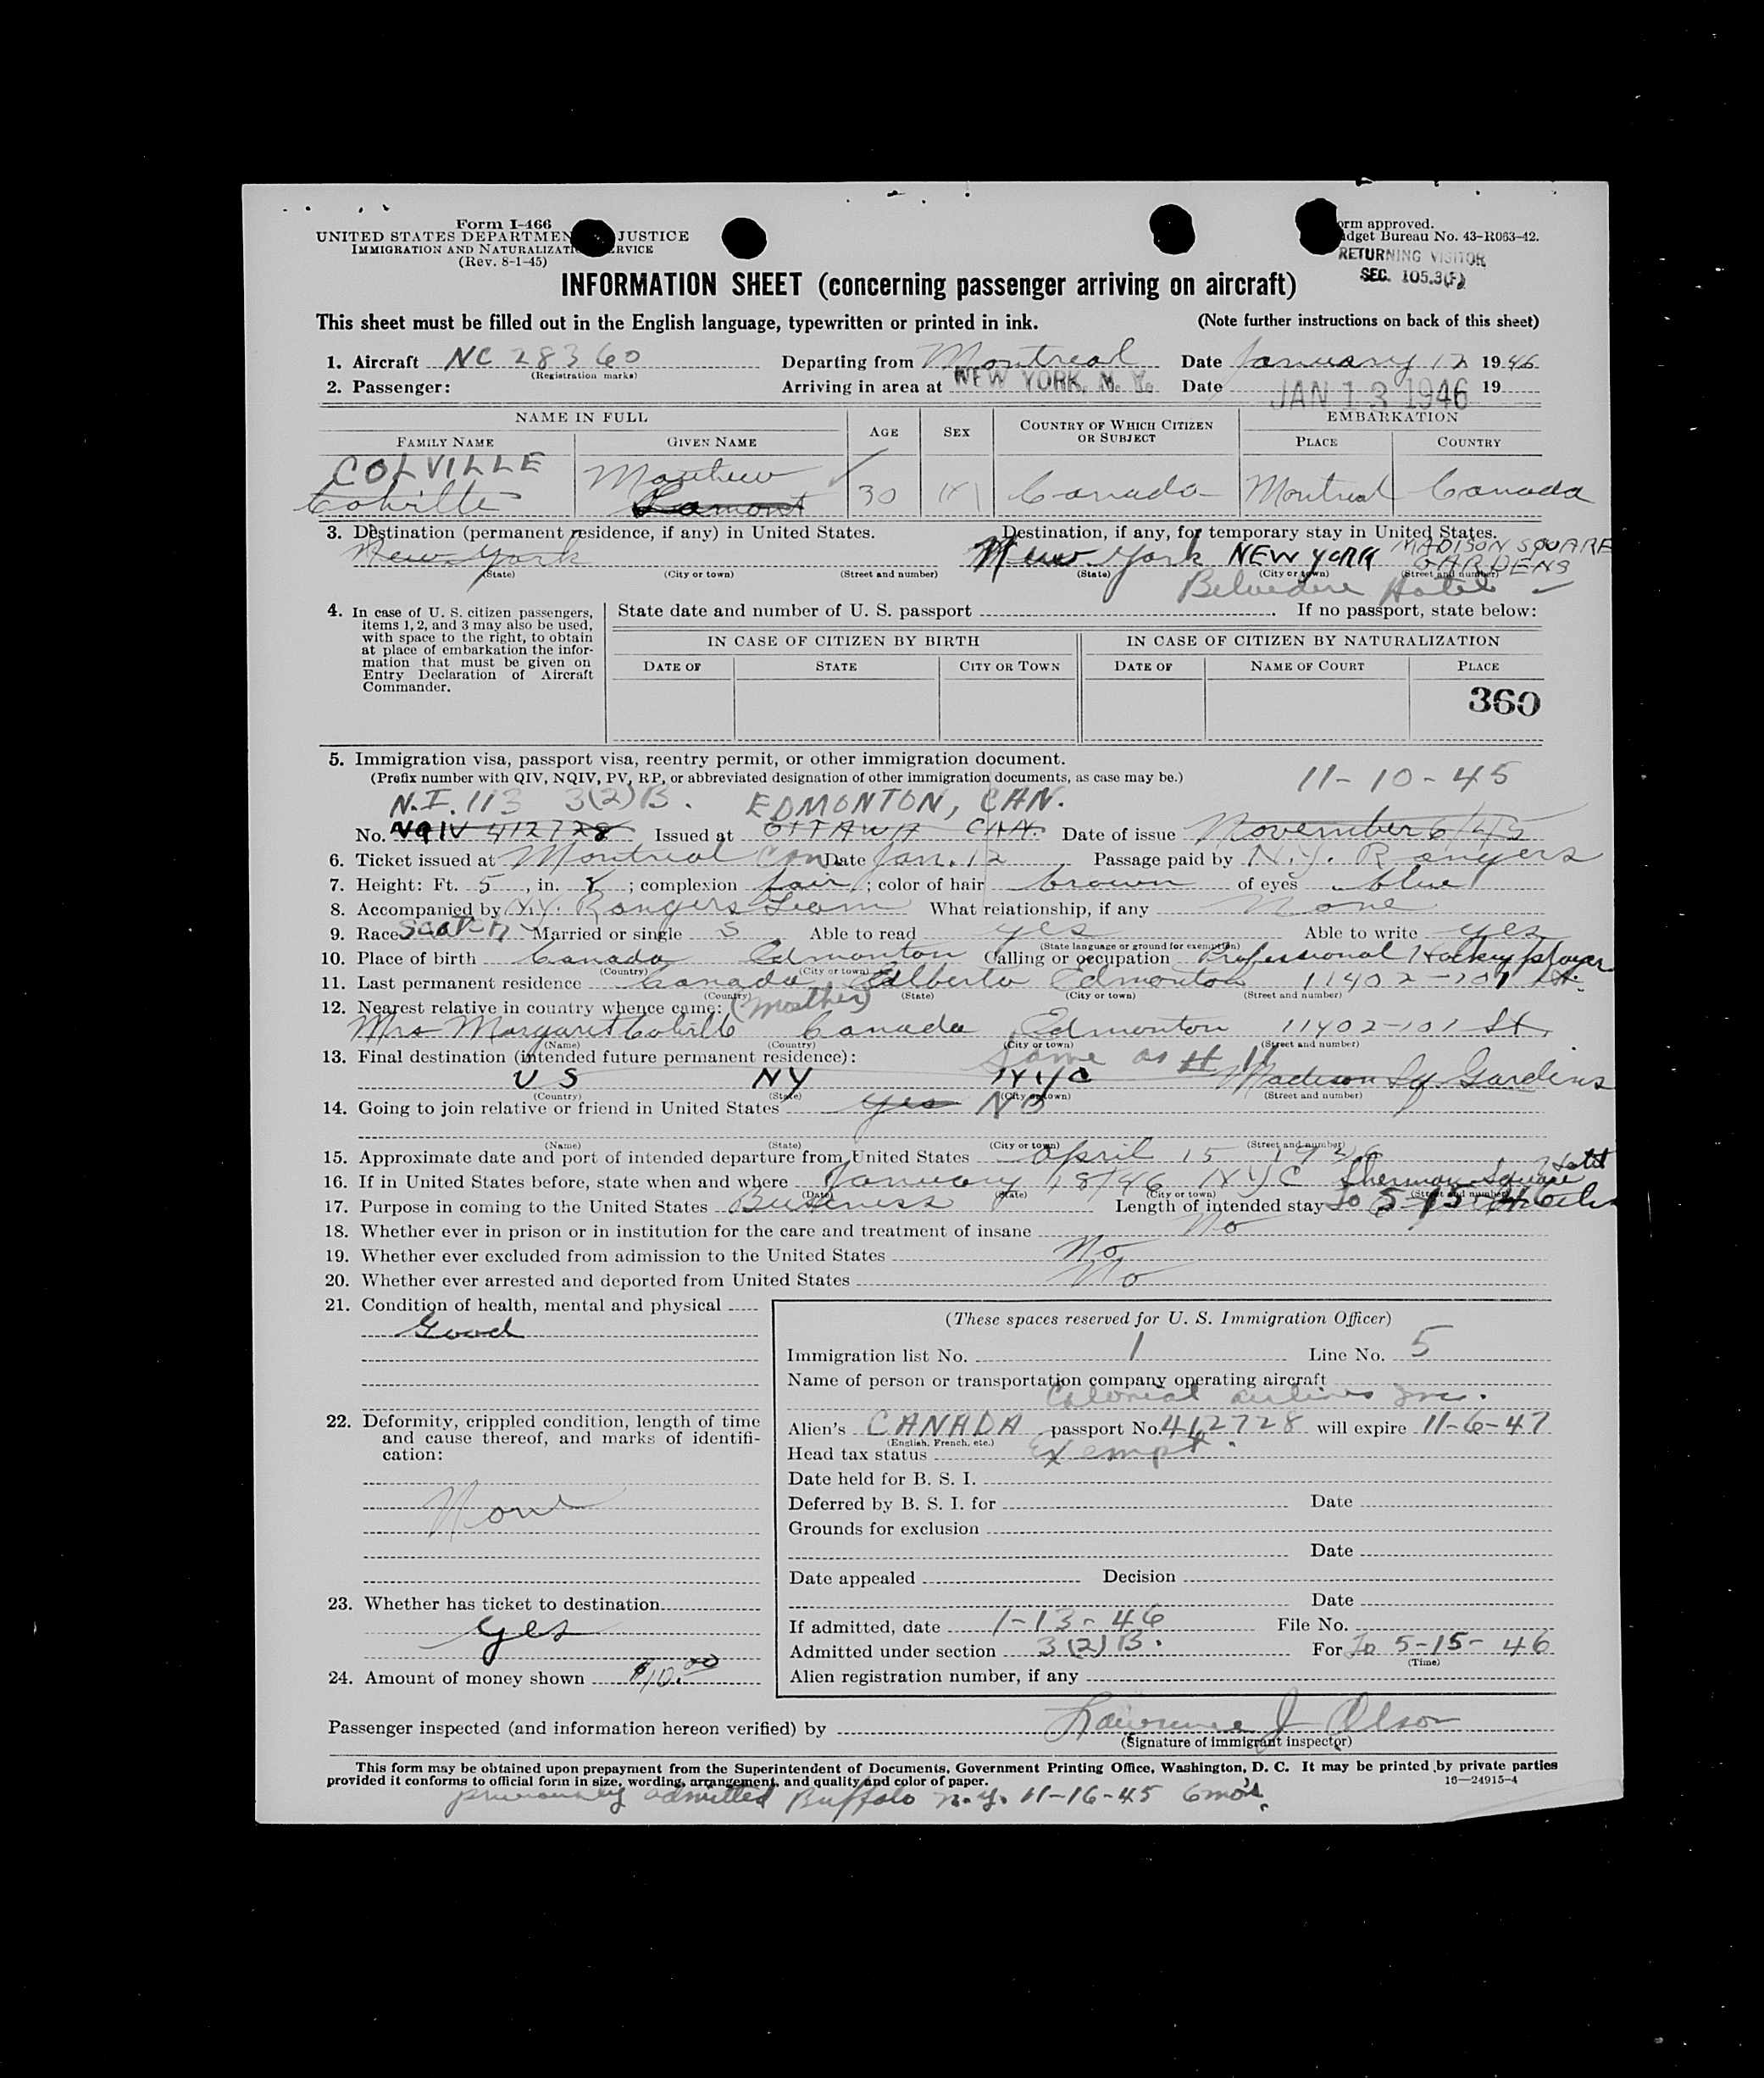 Form I-466
UNITED STATES DEPARTMEN JUSTICE
IMMIGRATION AND NATURALIZATI RVICE
(Rev. 8-1-45)
orm approved.
dget Bureau No. 43-R063-42.
RETURNING VISITOR
SEC. 105.3(F)
INFORMATION SHEET (concerning passenger arriving on aircraft)
This sheet must be filled out in the English language, typewritten or printed in ink. (Note further instructions on back of this sheet)
1. Aircraft NC 28360 Departing from Montreal Date January 12 1946
(Registration marks)
2. Passenger: Arriving in area at NEW YORK, N. Y. Date JAN 13 1946 19
NAME IN FULL AGE SEX COUNTRY OF WHICH CITIZEN OR SUBJECT EMBARKATION
FAMILY NAME GIVEN NAME PLACE COUNTRY
COLVILLE Matthew
Colville Lamont 30 M Canada Montreal Canada
3. Destination (permanent residence, if any) in United States. Destination, if any, for temporary stay in United States.
New York New York NEW YORK MADISON SQUARE GARDENS
(State) (City or town) (Street and number) (State) (City or town) (Street and number)
Belvedere Hotel
4. In case of U. S. citizen passengers, items 1, 2, and 3 may also be used, with space to the right, to obtain at place of embarkation the information that must be given on Entry Declaration of Aircraft Commander.
State date and number of U. S. passport If no passport, state below:
IN CASE OF CITIZEN BY BIRTH IN CASE OF CITIZEN BY NATURALIZATION
DATE OF STATE CITY OR TOWN DATE OF NAME OF COURT PLACE
360
5. Immigration visa, passport visa, reentry permit, or other immigration document.
(Prefix number with QIV, NQIV, PV, RP, or abbreviated designation of other immigration documents, as case may be.) 11-10-45
N.I. 113 3(2)B. EDMONTON, CAN.
No. NQIV 412728 Issued at OTTAWA CAN. Date of issue November 6/45
6. Ticket issued at Montreal Can Date Jan. 12 Passage paid by N.Y. Rangers
7. Height: Ft. 5, in. 8; complexion fair; color of hair brown of eyes blue
8. Accompanied by N.Y. Rangers Team What relationship, if any None
9. Race Scotch Married or single S Able to read yes Able to write yes
(State language or ground for exemption)
10. Place of birth Canada Edmonton Calling or occupation Professional Hockey player
(Country) (City or town)
11. Last permanent residence Canada Alberta Edmonton 11402-101 St.
(Country) (State) (City or town) (Street and number)
12. Nearest relative in country whence came: (Mother)
Mrs Margaret Colville Canada Edmonton 11402-101 St.
(Name) (Country) (City or town) (Street and number)
13. Final destination (intended future permanent residence): Same as # 11
U S NY NYC Madison Sq Gardens
(Country) (State) (City or town) (Street and number)
14. Going to join relative or friend in United States yes NO
(Name) (State) (City or town) (Street and number)
15. Approximate date and port of intended departure from United States April 15 1946
16. If in United States before, state when and where January /8/46 NYC Sherman Square Hotel
(Date) (State) (City or town) (Street and number)
17. Purpose in coming to the United States Business Length of intended stay To 5-15-46
18. Whether ever in prison or in institution for the care and treatment of insane No
19. Whether ever excluded from admission to the United States No
20. Whether ever arrested and deported from United States No
21. Condition of health, mental and physical
Good
22. Deformity, crippled condition, length of time and cause thereof, and marks of identification:
None
23. Whether has ticket to destination
yes
24. Amount of money shown $10.00
(These spaces reserved for U. S. Immigration Officer)
Immigration list No. 1 Line No. 5
Name of person or transportation company operating aircraft
Colonial Airlines Inc.
Alien's CANADA passport No. 412728 will expire 11-6-47
(English, French, etc.)
Head tax status Exempt.
Date held for B. S. I.
Deferred by B. S. I. for Date
Grounds for exclusion
Date
Date appealed Decision
Date
If admitted, date 1-13-46 File No.
Admitted under section 3(2)B. For To 5-15-46
(Time)
Alien registration number, if any
Passenger inspected (and information hereon verified) by Lawrence J Olson
(Signature of immigrant inspector)
This form may be obtained upon prepayment from the Superintendent of Documents, Government Printing Office, Washington, D. C. It may be printed by private parties
provided it conforms to official form in size, wording, arrangement, and quality and color of paper. 16—24915-4
previously admitted Buffalo N.Y. 11-16-45 6mo's.